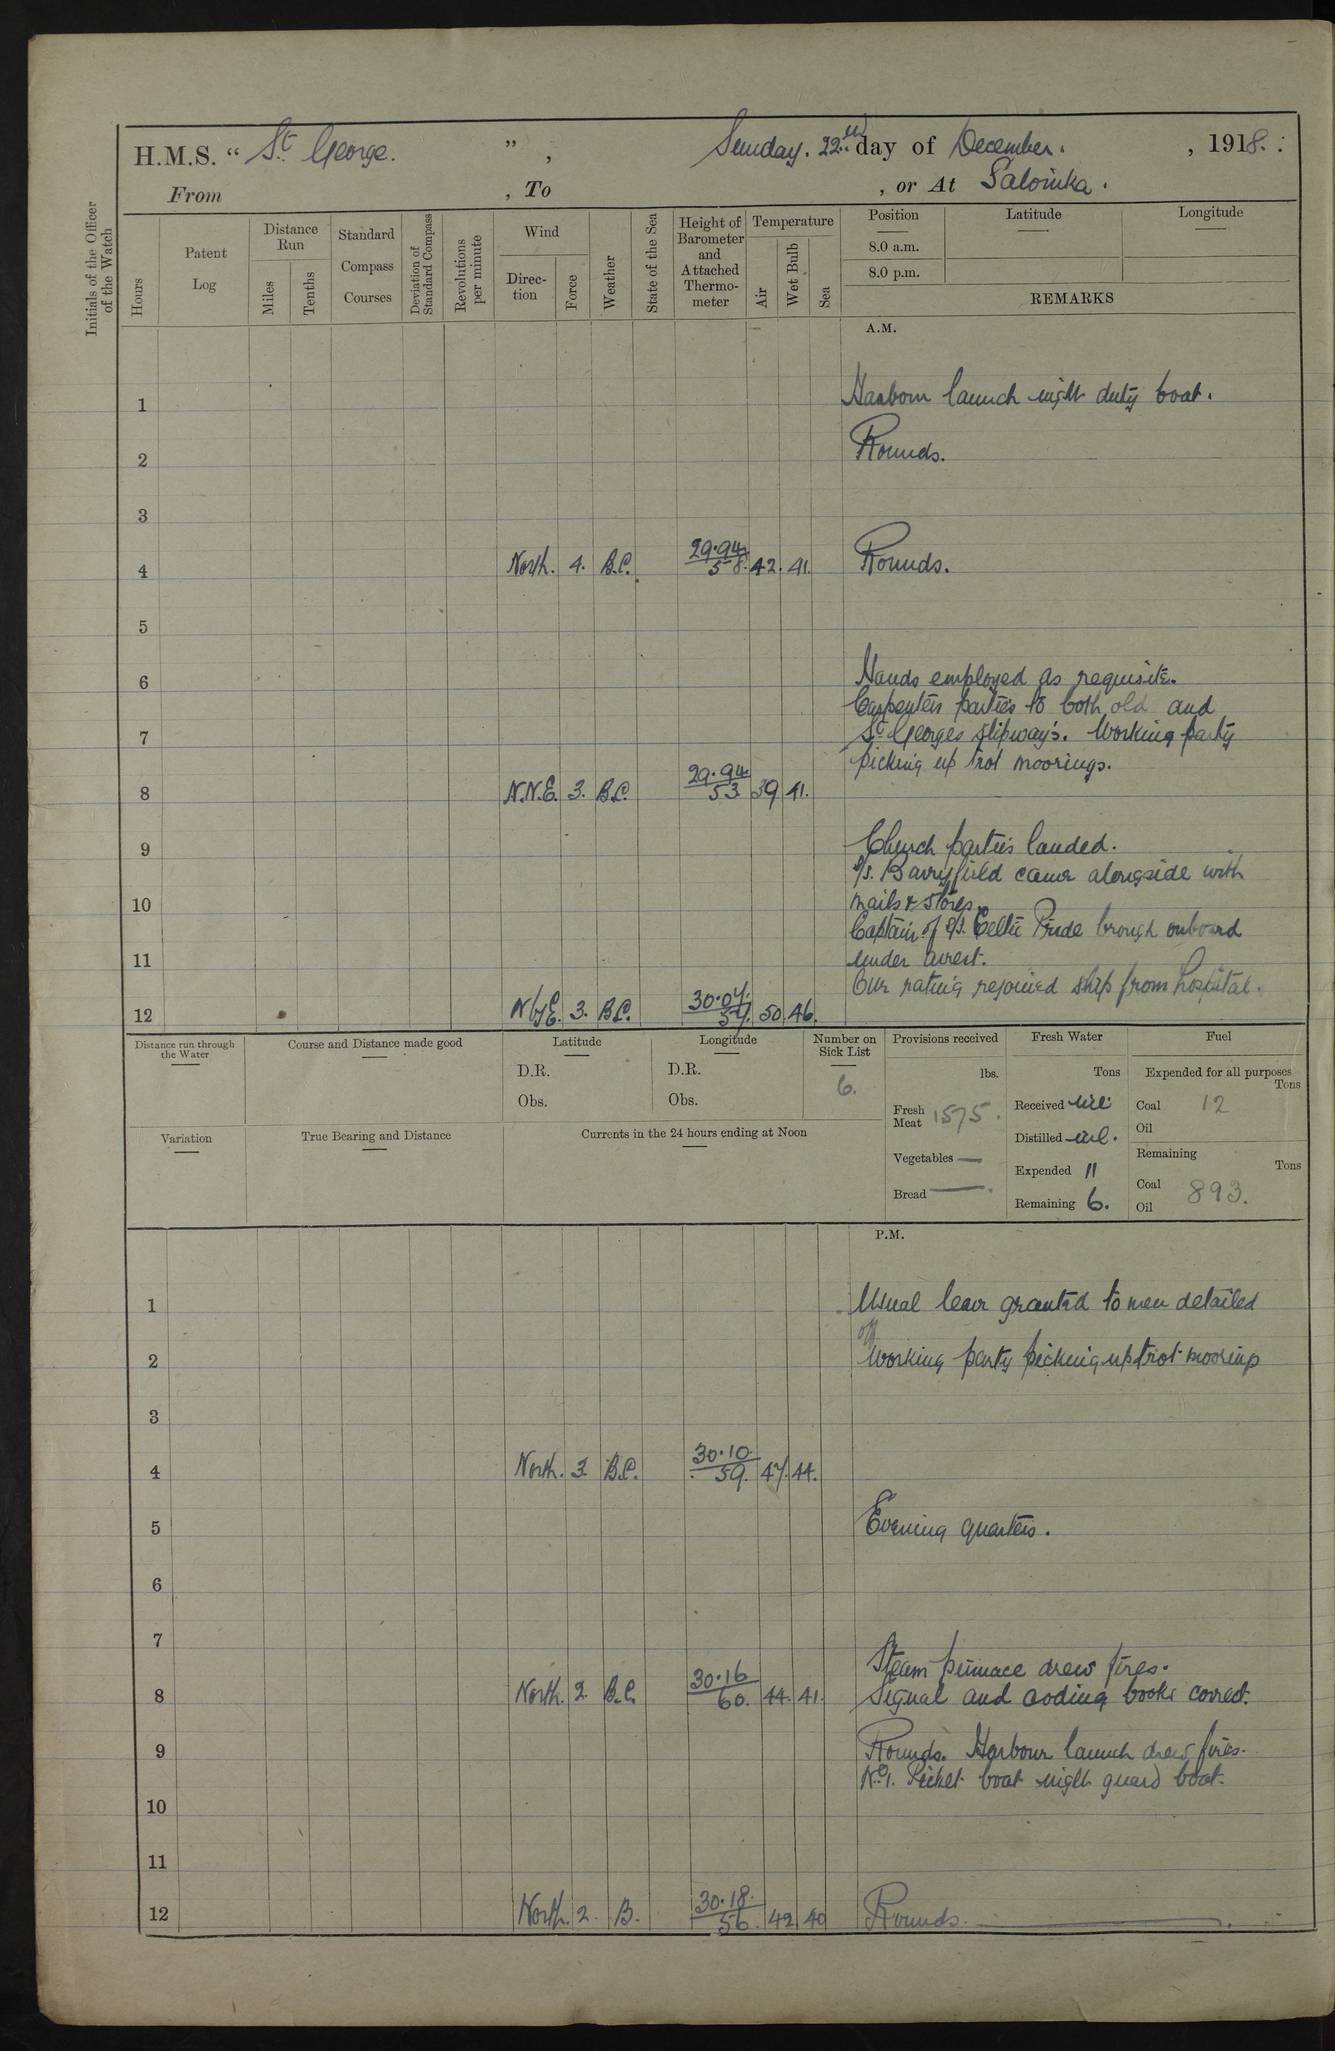 H.M.S. “ St George. ” , Sunday. 22nd day of December. , 1918.
From , To , or At Salonika.
Initials of the Officer of the Watch
Hours
Patent Log
Distance Run
Miles
Tenths
Standard Compass Courses
Deviation of Standard Compass
Revolutions per minute
Wind
Direction
Force
Weather
State of the Sea
Height of Barometer and Attached Thermometer
Temperature
Air
Wet Bulb
Sea
Position Latitude Longitude
8.0 a.m.
8.0 p.m.
REMARKS
A.M.
1 Harbour launch night duty boat.
2 Rounds.
3
4 North. 4. B.C. 29.94 58. 42. 41. Rounds.
5
6 Hands employed as requisite.
Carpenters parties to both old and
7 St Georges slipway's. Working party
picking up trot moorings.
8 N.N.E. 3. B.C. 29.94 53 39 41.
9 Church parties landed.
S/S. Barryfield came alongside with
10 mails & stores.
Captain of S/S. Celtic Pride brough onboard
11 under arrest.
One rating rejoined ship from hospital.
12 N by E. 3. B.C. 30.07. 57. 50. 46.
Distance run through the Water
Course and Distance made good
Latitude
D.R.
Obs.
Longitude
D.R.
Obs.
Number on Sick List
6.
Provisions received
lbs.
Fresh Meat 1575.
Vegetables —
Bread —
Fresh Water
Tons
Received nil
Distilled nil.
Expended 11
Remaining 6.
Fuel
Expended for all purposes
Tons
Coal 12
Oil
Remaining
Tons
Coal 893.
Oil
Variation
True Bearing and Distance
Currents in the 24 hours ending at Noon
P.M.
1 Usual leave granted to men detailed
off
2 Working party picking up trot moorings
3
4 North. 3. B.C. 30.10. 59. 47. 44.
5 Evening quarters.
6
7
Steam pinnace drew fires.
8 North. 2. B.C. 30.16 60. 44. 41. Signal and coding books correct.
9 Rounds. Harbour launch drew fires.
No 1. Picket boat night guard boat.
10
11
12 North. 2. B. 30.18. 56. 42 40 Rounds.